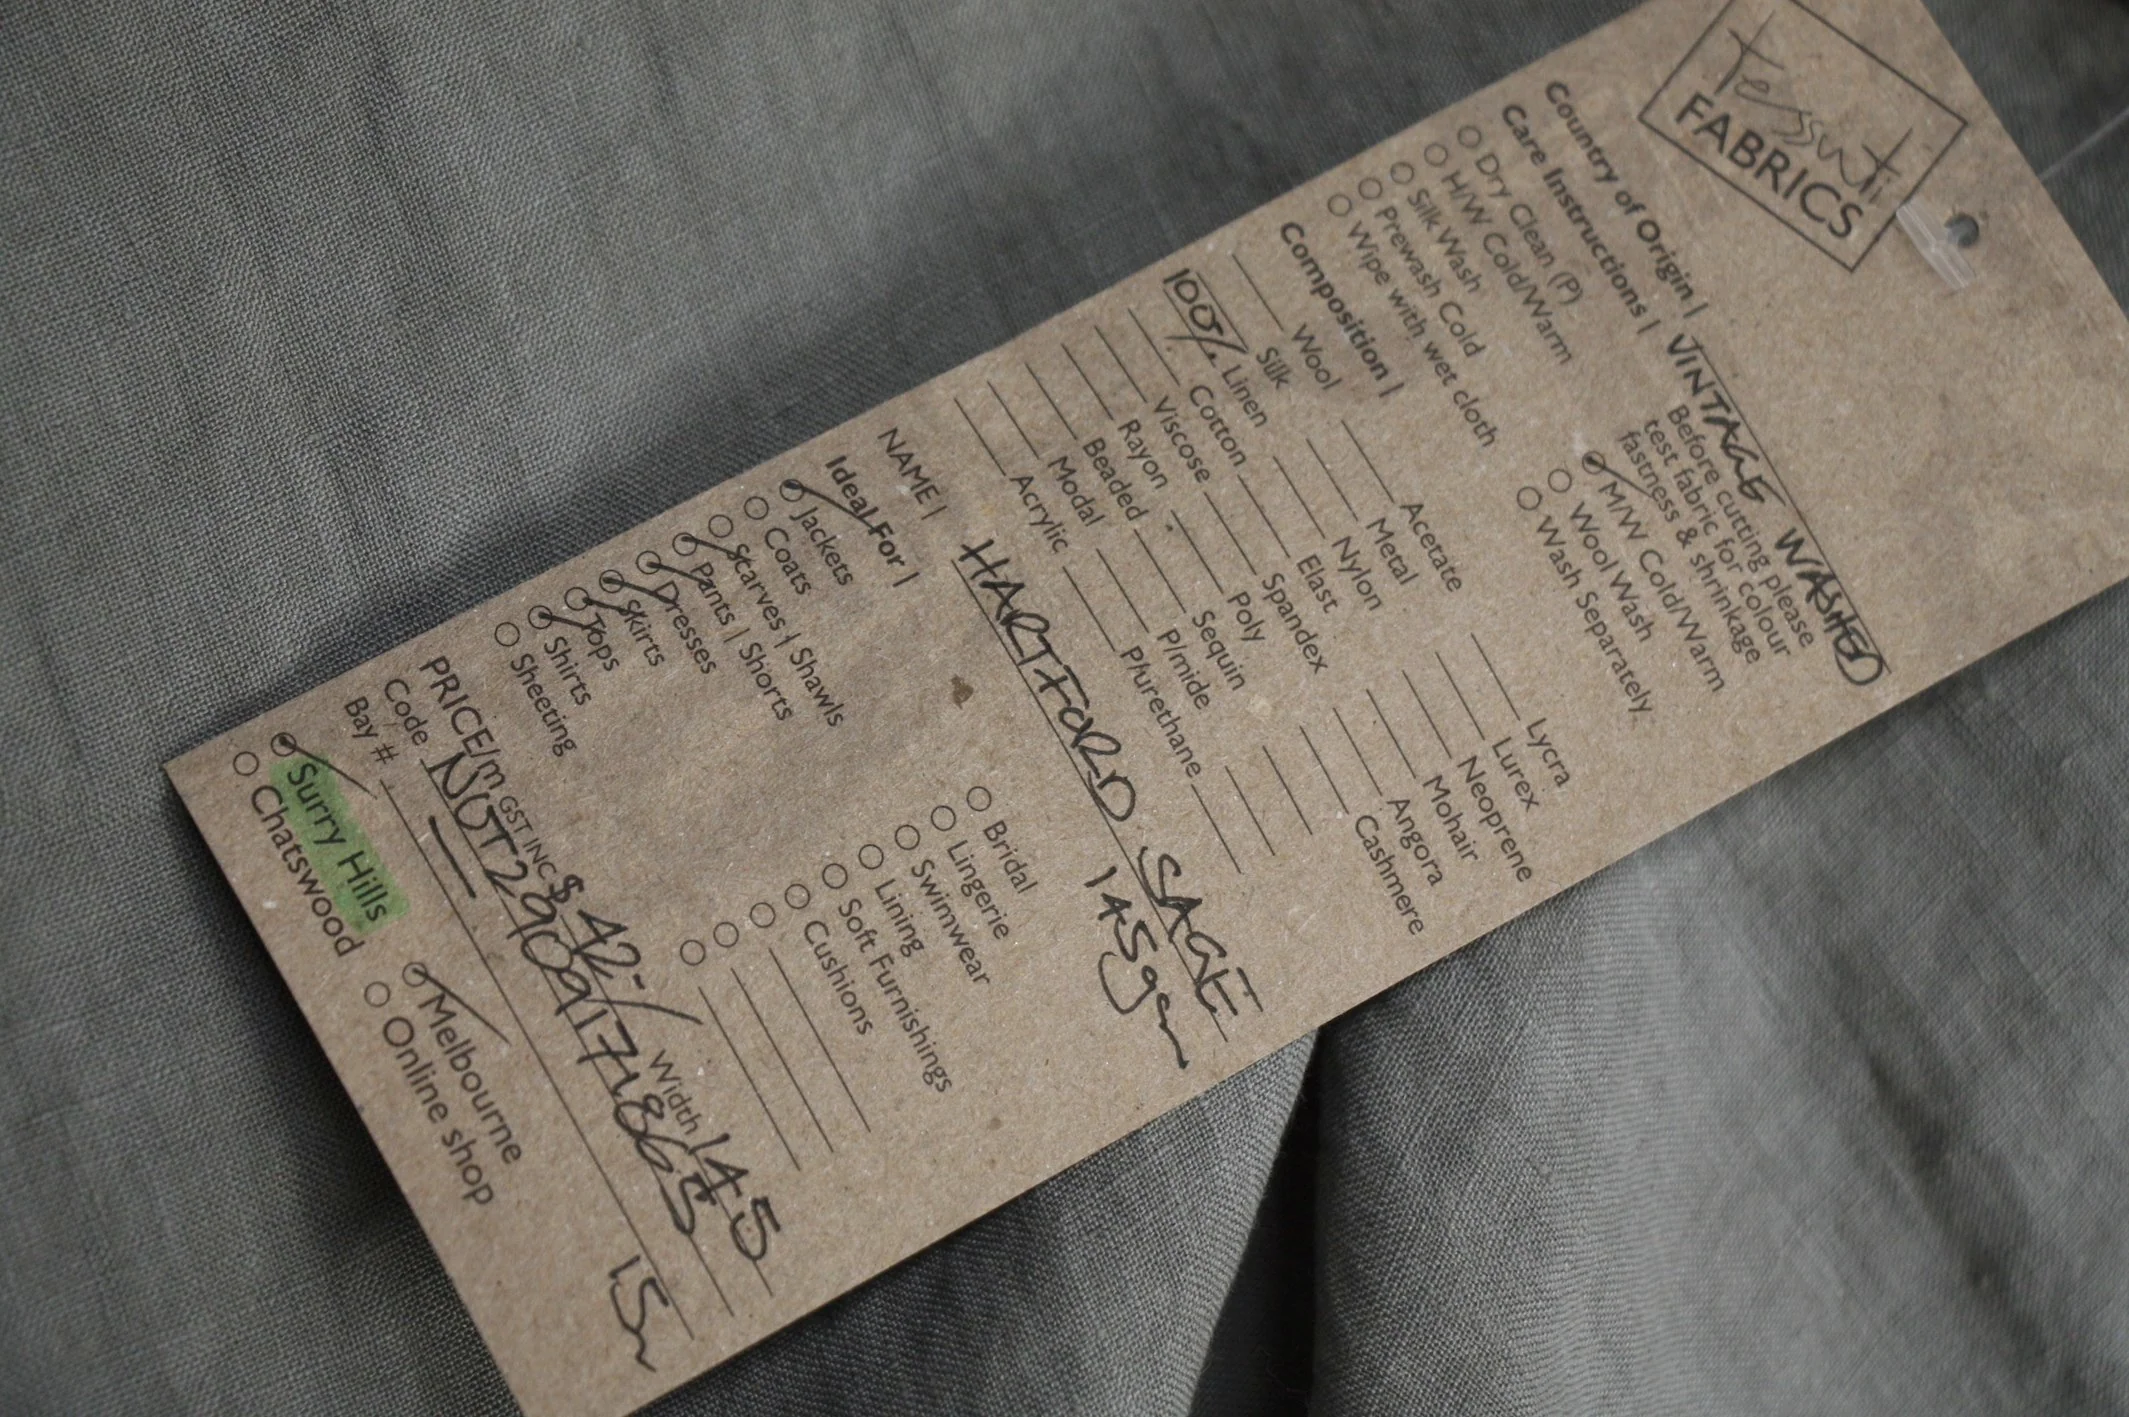 tessuti
FABRICS
Country of Origin | VINTAGE WASHED
Care Instructions | Before cutting please
test fabric for colour
fastness & shrinkage
Dry Clean (P) M/W Cold/Warm
H/W Cold/Warm Wool Wash
Silk Wash Wash Separately
Prewash Cold
Wipe with wet cloth
Composition |
Wool Acetate Lycra
Silk Metal Lurex
100% Linen Nylon Neoprene
Cotton Elast Mohair
Viscose Spandex Angora
Rayon Poly Cashmere
Beaded Sequin
Modal P/mide
Acrylic P/urethane
NAME | HARTFORD SAGE
145gsm
Ideal For |
Jackets Bridal
Coats Lingerie
Scarves | Shawls Swimwear
Pants | Shorts Lining
Dresses Soft Furnishings
Skirts Cushions
Tops
Shirts
Sheeting
PRICE/m GST INC $ 42-/ Width 145
Code
Bay # 15m
Surry Hills Melbourne
Chatswood Online shop